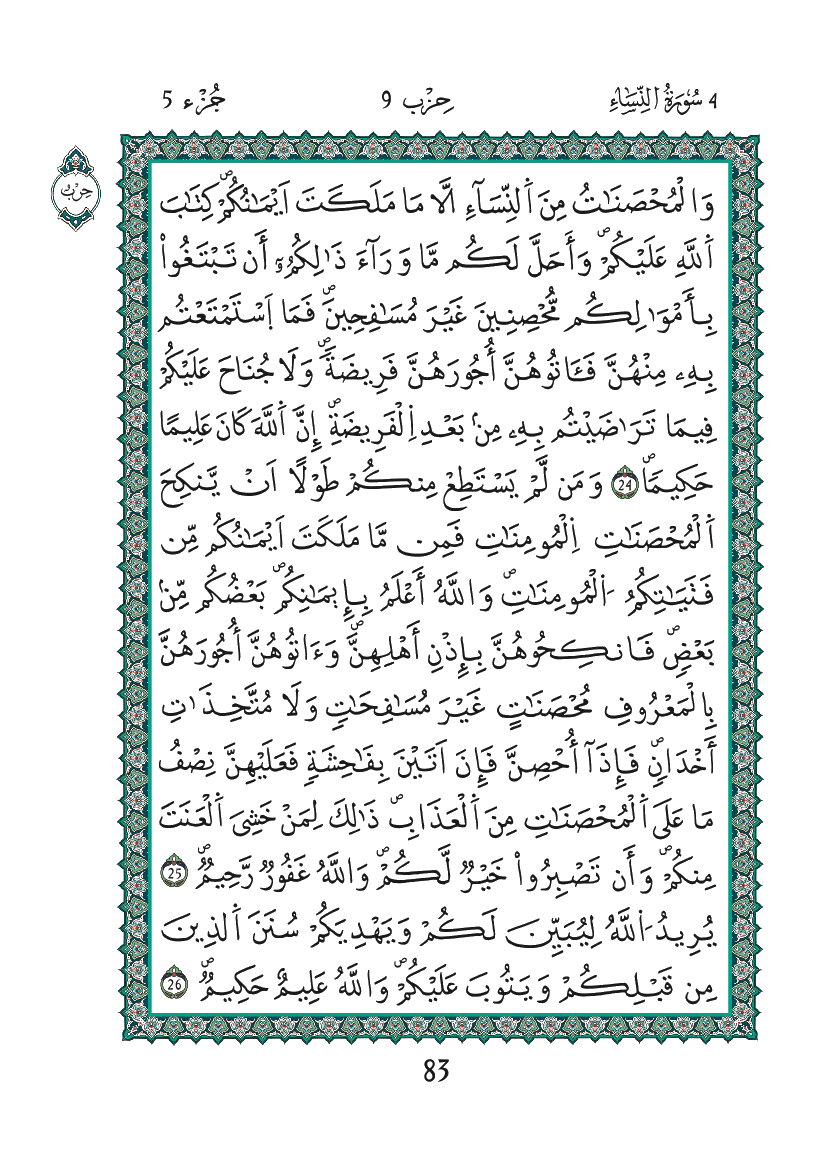 4 سُورَةُ النِّسَاءِ
حِزْب 9
جُزْء 5
حِزْب
وَالْمُحْصَنَٰتُ مِنَ اَ۬لنِّسَآءِ الَّا مَا مَلَكَتَ اَيْمَٰنُكُمْۖ كِتَٰبَ
اَ۬للَّهِ عَلَيْكُمْۖ وَأَحَلَّ لَكُم مَّا وَرَآءَ ذَٰلِكُمُۥٓ أَن تَبْتَغُواْ
بِأَمْوَٰلِكُم مُّحْصِنِينَ غَيْرَ مُسَٰفِحِينَۖ فَمَا اَ۪سْتَمْتَعْتُم
بِهِۦ مِنْهُنَّ فَـَٔاتُوهُنَّ أُجُورَهُنَّ فَرِيضَةٗۖ وَلَا جُنَاحَ عَلَيْكُمْ
فِيمَا تَرَٰضَيْتُم بِهِۦ مِنۢ بَعْدِ اِ۬لْفَرِيضَةِۖ إِنَّ اَ۬للَّهَ كَانَ عَلِيمًا
حَكِيمٗاۖ 24 وَمَن لَّمْ يَسْتَطِعْ مِنكُمْ طَوْلًا اَنْ يَّنكِحَ
اَ۬لْمُحْصَنَٰتِ اِ۬لْمُومِنَٰتِ فَمِن مَّا مَلَكَتَ اَيْمَٰنُكُم مِّن
فَتَيَٰتِكُمُ اُ۬لْمُومِنَٰتِۖ وَاللَّهُ أَعْلَمُ بِإِيمَٰنِكُمۖ بَعْضُكُم مِّنۢ
بَعْضٖۖ فَانكِحُوهُنَّ بِإِذْنِ أَهْلِهِنَّۖ وَءَاتُوهُنَّ أُجُورَهُنَّ
بِالْمَعْرُوفِ مُحْصَنَٰتٍ غَيْرَ مُسَٰفِحَٰتٖ وَلَا مُتَّخِذَٰتِ
أَخْدَانٖۖ فَإِذَآ أُحْصِنَّ فَإِنَ اَتَيْنَ بِفَٰحِشَةٖ فَعَلَيْهِنَّ نِصْفُ
مَا عَلَى اَ۬لْمُحْصَنَٰتِ مِنَ اَ۬لْعَذَابِۖ ذَٰلِكَ لِمَنْ خَشِيَ اَ۬لْعَنَتَ
مِنكُمْۖ وَأَن تَصْبِرُواْ خَيْرٞ لَّكُمْۖ وَاللَّهُ غَفُورٞ رَّحِيمٞۖ 25
يُرِيدُ اُ۬للَّهُ لِيُبَيِّنَ لَكُمْ وَيَهْدِيَكُمْ سُنَنَ اَ۬لذِينَ
مِن قَبْلِكُمْ وَيَتُوبَ عَلَيْكُمْۖ وَاللَّهُ عَلِيمٌ حَكِيمٞۖ 26
83